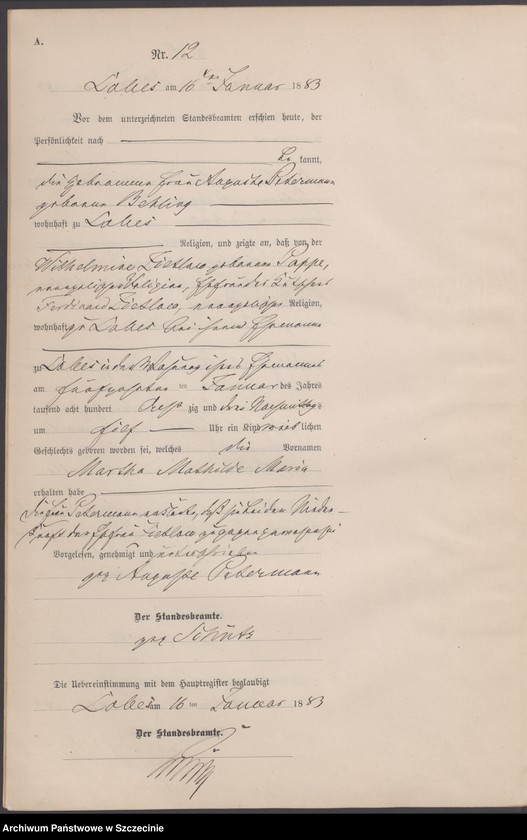 A.
Nr. 12
Labes am 16ten Januar 1883
Vor dem unterzeichneten Standesbeamten erschien heute, der
Persönlichkeit nach
bekannt,
die Hebamme Frau Auguste Petermann
geborene Behling
wohnhaft zu Labes
Religion, und zeigte an, daß von der
Wilhelmine Dietlow geborenen Pappe,
evangelischer Religion, Ehefrau des
Ferdinand Dietlow, evangelischer Religion,
wohnhaft zu Labes bei ihrem Ehemanne
zu Labes in der Wohnung ihres Ehemannes
am fünfzehnten ten Januar des Jahres
tausend acht hundert achtzig und drei Nachmittags
um elf Uhr ein Kind weiblichen
Geschlechts geboren worden sei, welches die Vornamen
Martha Mathilde Maria
erhalten habe
Die Frau Petermann erklärte, daß sie bei der Nieder-
kunft der Ehefrau Dietlow zugegen gewesen sei
Vorgelesen, genehmigt und unterschrieben
gez Auguste Petermann
Der Standesbeamte.
gez Schütz
Die Uebereinstimmung mit dem Hauptregister beglaubigt
Labes am 16 ten Januar 1883
Der Standesbeamte.
Archiwum Państwowe w Szczecinie